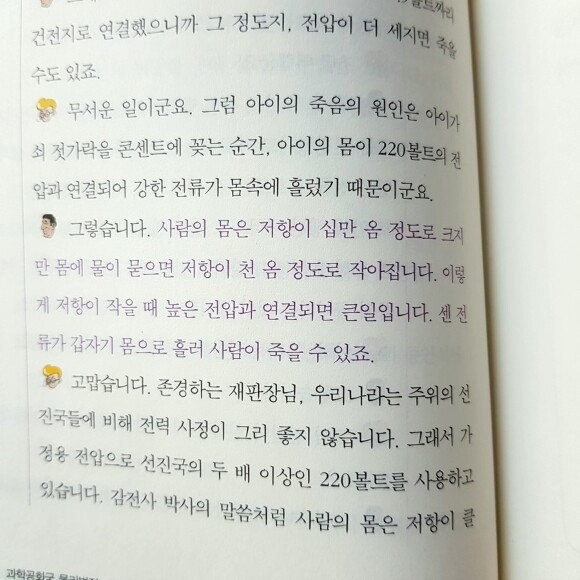 건전지로 연결했으니까 그 정도지, 전압이 더 세지면 죽을
수도 있죠.
무서운 일이군요. 그럼 아이의 죽음의 원인은 아이가
쇠 젓가락을 콘센트에 꽂는 순간, 아이의 몸이 220볼트의 전
압과 연결되어 강한 전류가 몸속에 흘렀기 때문이군요.
그렇습니다. 사람의 몸은 저항이 십만 옴 정도로 크지
만 몸에 물이 묻으면 저항이 천 옴 정도로 작아집니다. 이렇
게 저항이 작을 때 높은 전압과 연결되면 큰일입니다. 센 전
류가 갑자기 몸으로 흘러 사람이 죽을 수 있죠.
고맙습니다. 존경하는 재판장님, 우리나라는 주위의 선
진국들에 비해 전력 사정이 그리 좋지 않습니다. 그래서 가
정용 전압으로 선진국의 두 배 이상인 220볼트를 사용하고
있습니다. 감전사 박사의 말씀처럼 사람의 몸은 저항이 클
과학공화국